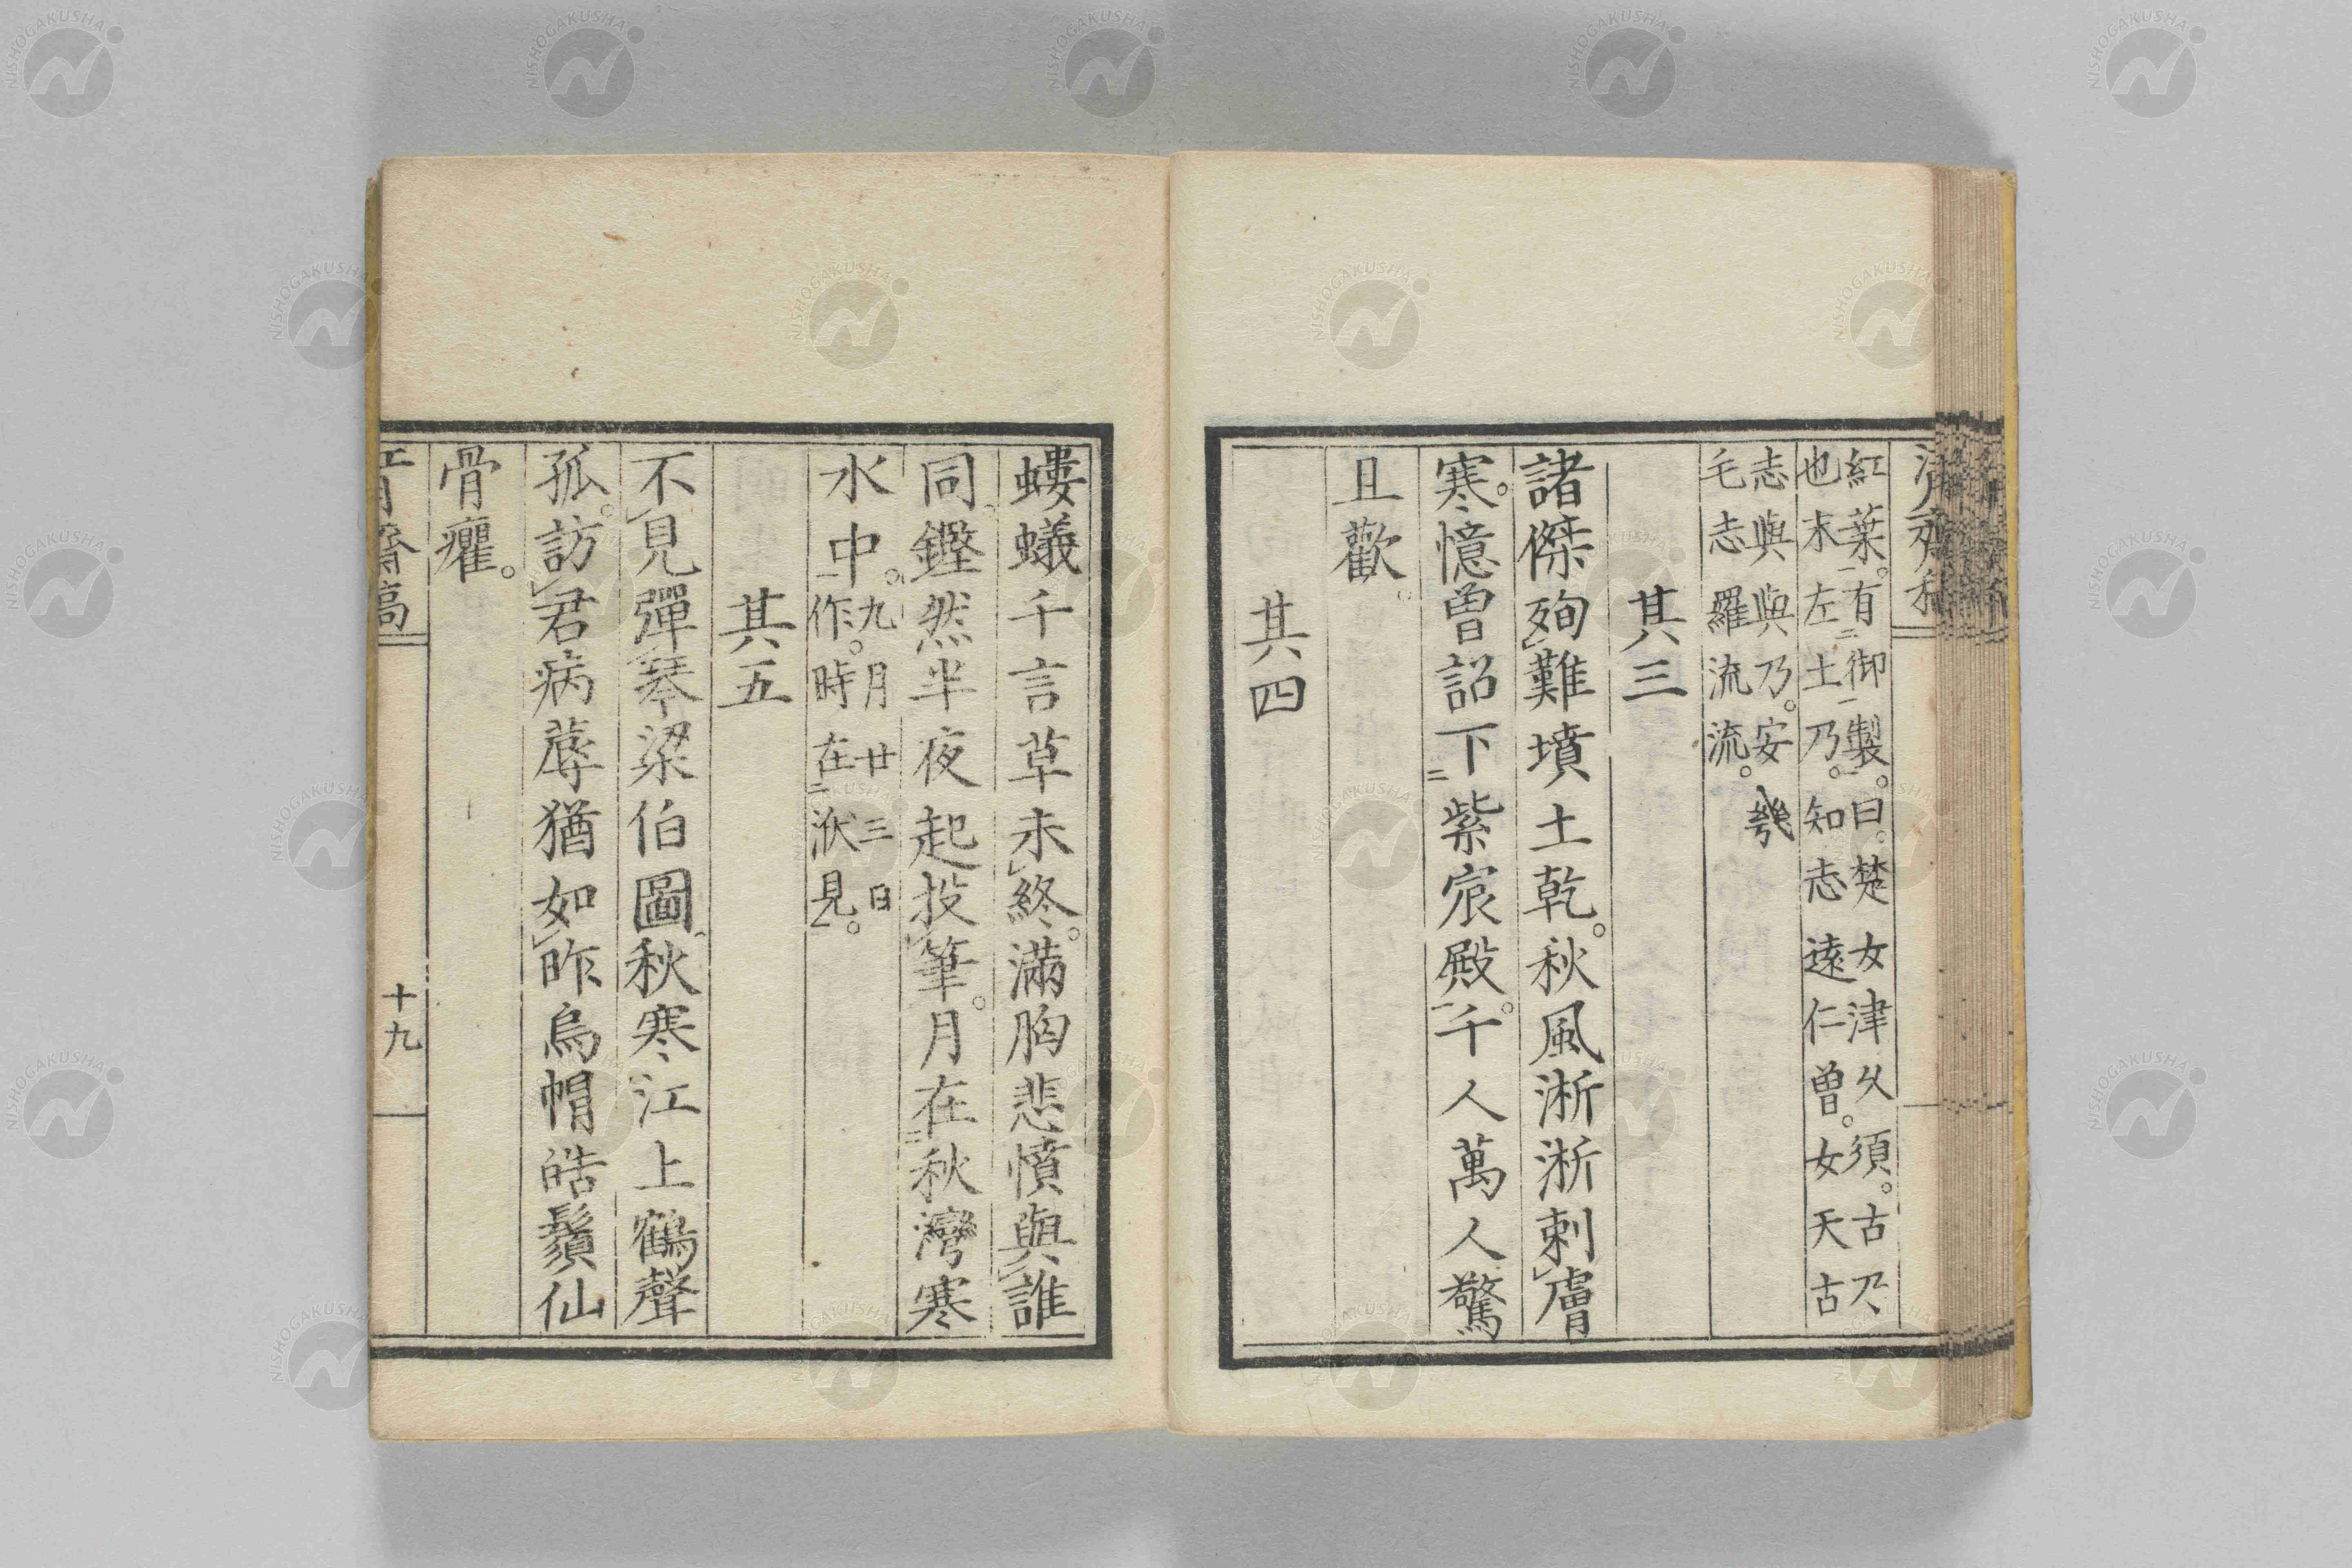 紅葉。有御製。曰。楚女津久須。古乃
也末左土乃。知志遠仁曽。女天古
志與與乃。安幾
毛志羅流流。
其三
諸傑殉難墳土乾。秋風淅淅刺膚
寒。憶曽詔下紫宸殿。千人萬人驚
且歡。
其四
螻蟻千言草未終。滿胸悲憤與誰
同。鏗然半夜起投筆。月在秋灣寒
水中。九月廿三日
作。時在洑見。
其五
不見彈琴梁伯圖。秋寒江上鶴聲
孤。訪君病蓐猶如昨。烏帽皓鬚仙
骨癯。
江月齋稿
十九
NISHOGAKUSHA